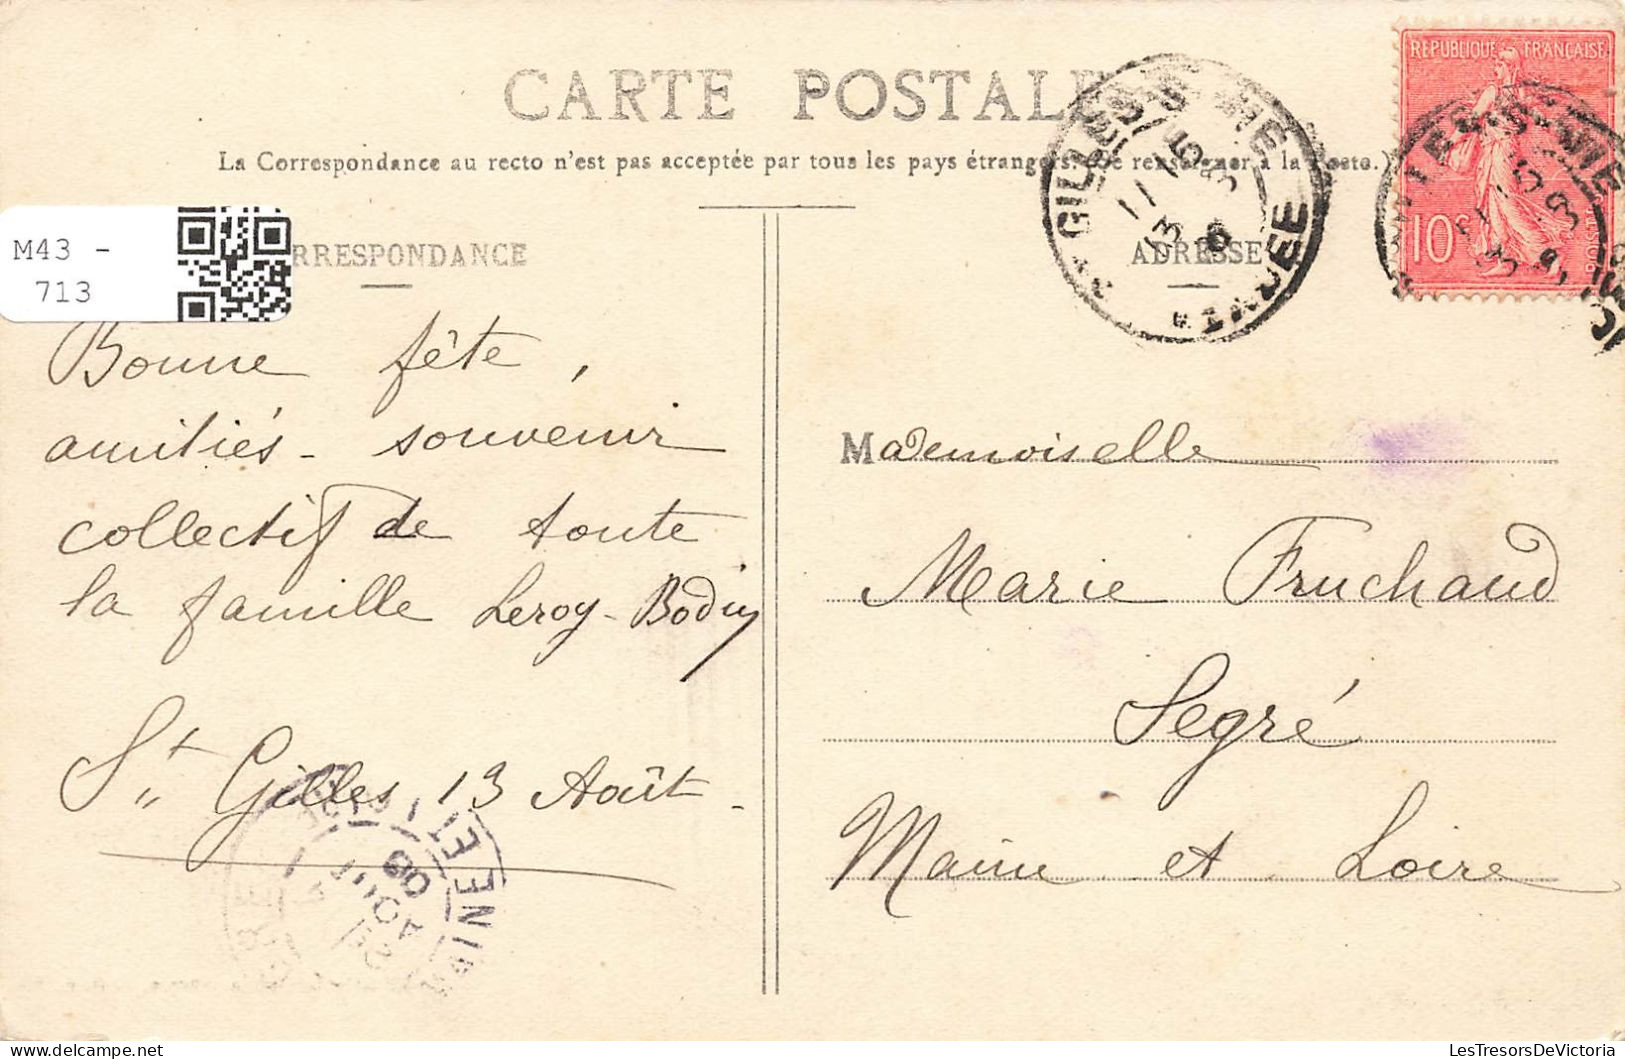 CARTE POSTALE
La Correspondance au recto n'est pas acceptée par tous les pays étrangers. (Se renseigner à la Poste.)
RÉPUBLIQUE FRANÇAISE
10 c
POSTES
M43 -
713
RRESPONDANCE
Bonne fête,
amitiés - souvenir
collectif de toute
la famille Leroy-Bodin
St Gilles 13 Août -
ADRESSE
Mademoiselle
Marie Fruchaud
Segré
Maine et Loire
GILLES S VIE
VENDEE
MAINE ET LOIRE
AOUT
08
LesTresorsDeVictoria
delcampe.net